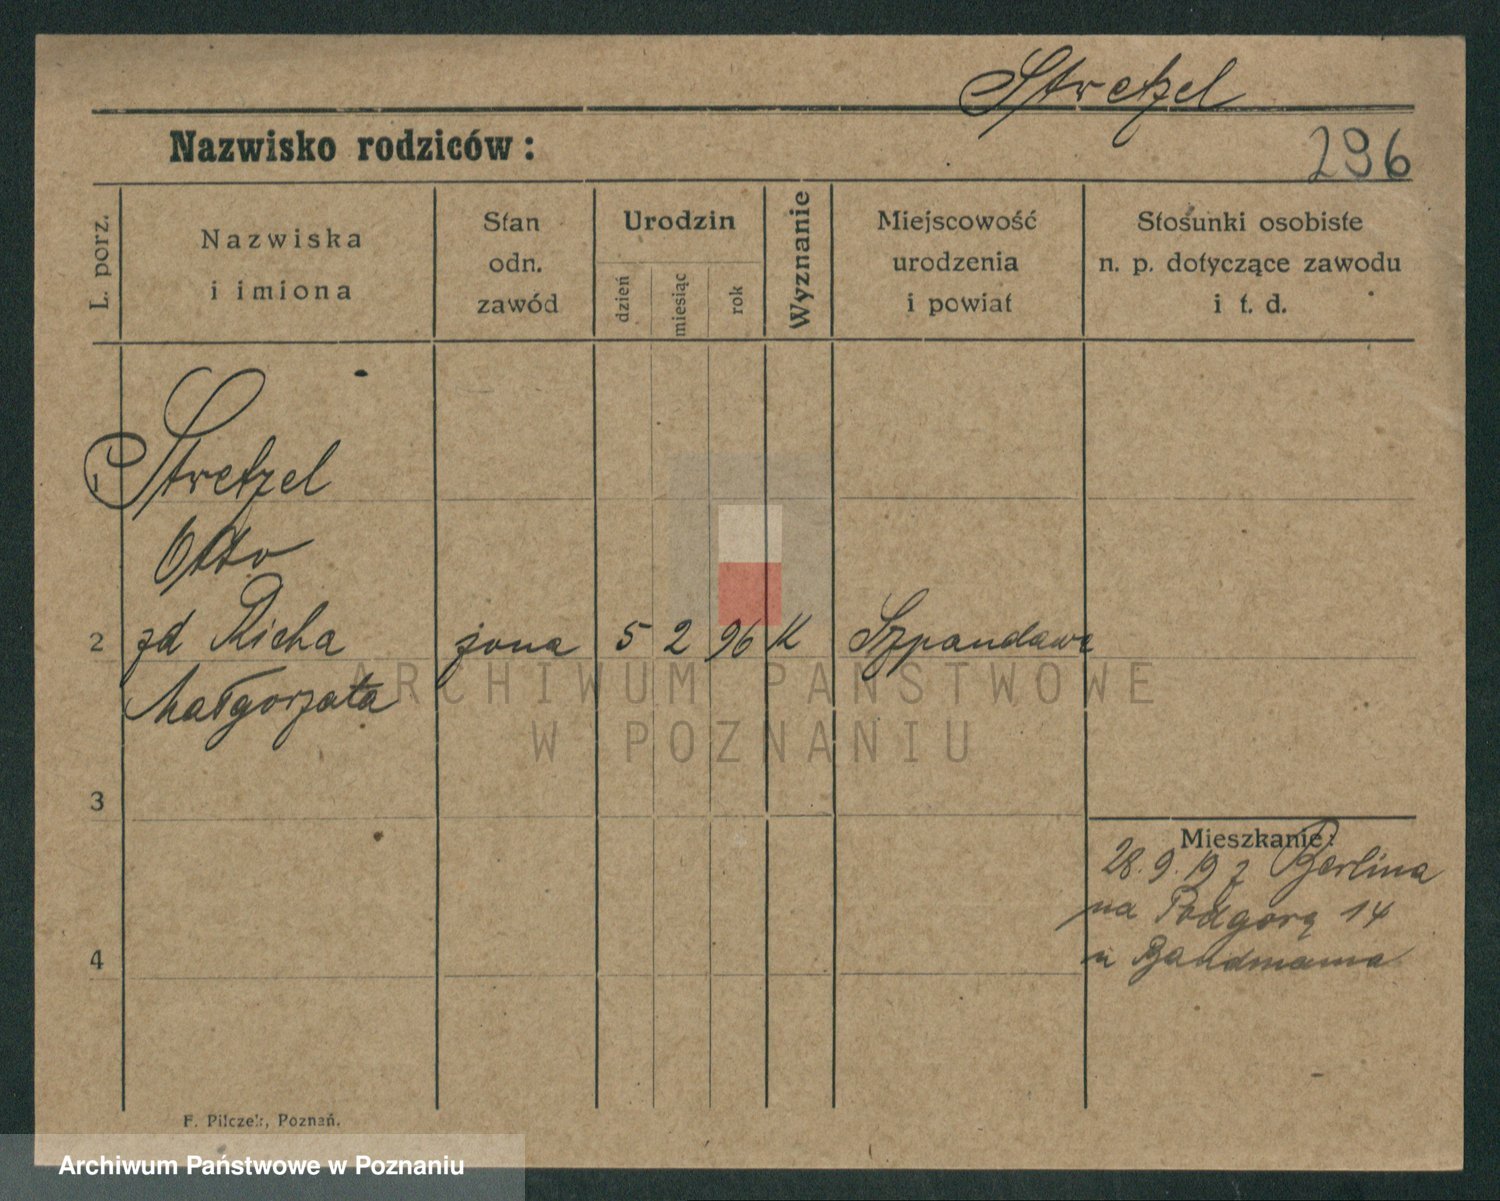 Stretzel
Nazwisko rodziców:
296
L. porz.
Nazwiska
i imiona
Stan
odn.
zawód
Urodzin
dzień
miesiąc
rok
Wyznanie
Miejscowość
urodzenia
i powiat
Stosunki osobiste
n. p. dotyczące zawodu
i t. d.
1 Stretzel
Otto
2 zd Richa żona 5 2 96 K Szpandawa
Małgorzata
3
Mieszkanie:
28.9.19 z Berlina
na Podgorą 14
u Bandmanna
4
F. Pilczek, Poznań.
ARCHIWUM PAŃSTWOWE
W POZNANIU
Archiwum Państwowe w Poznaniu